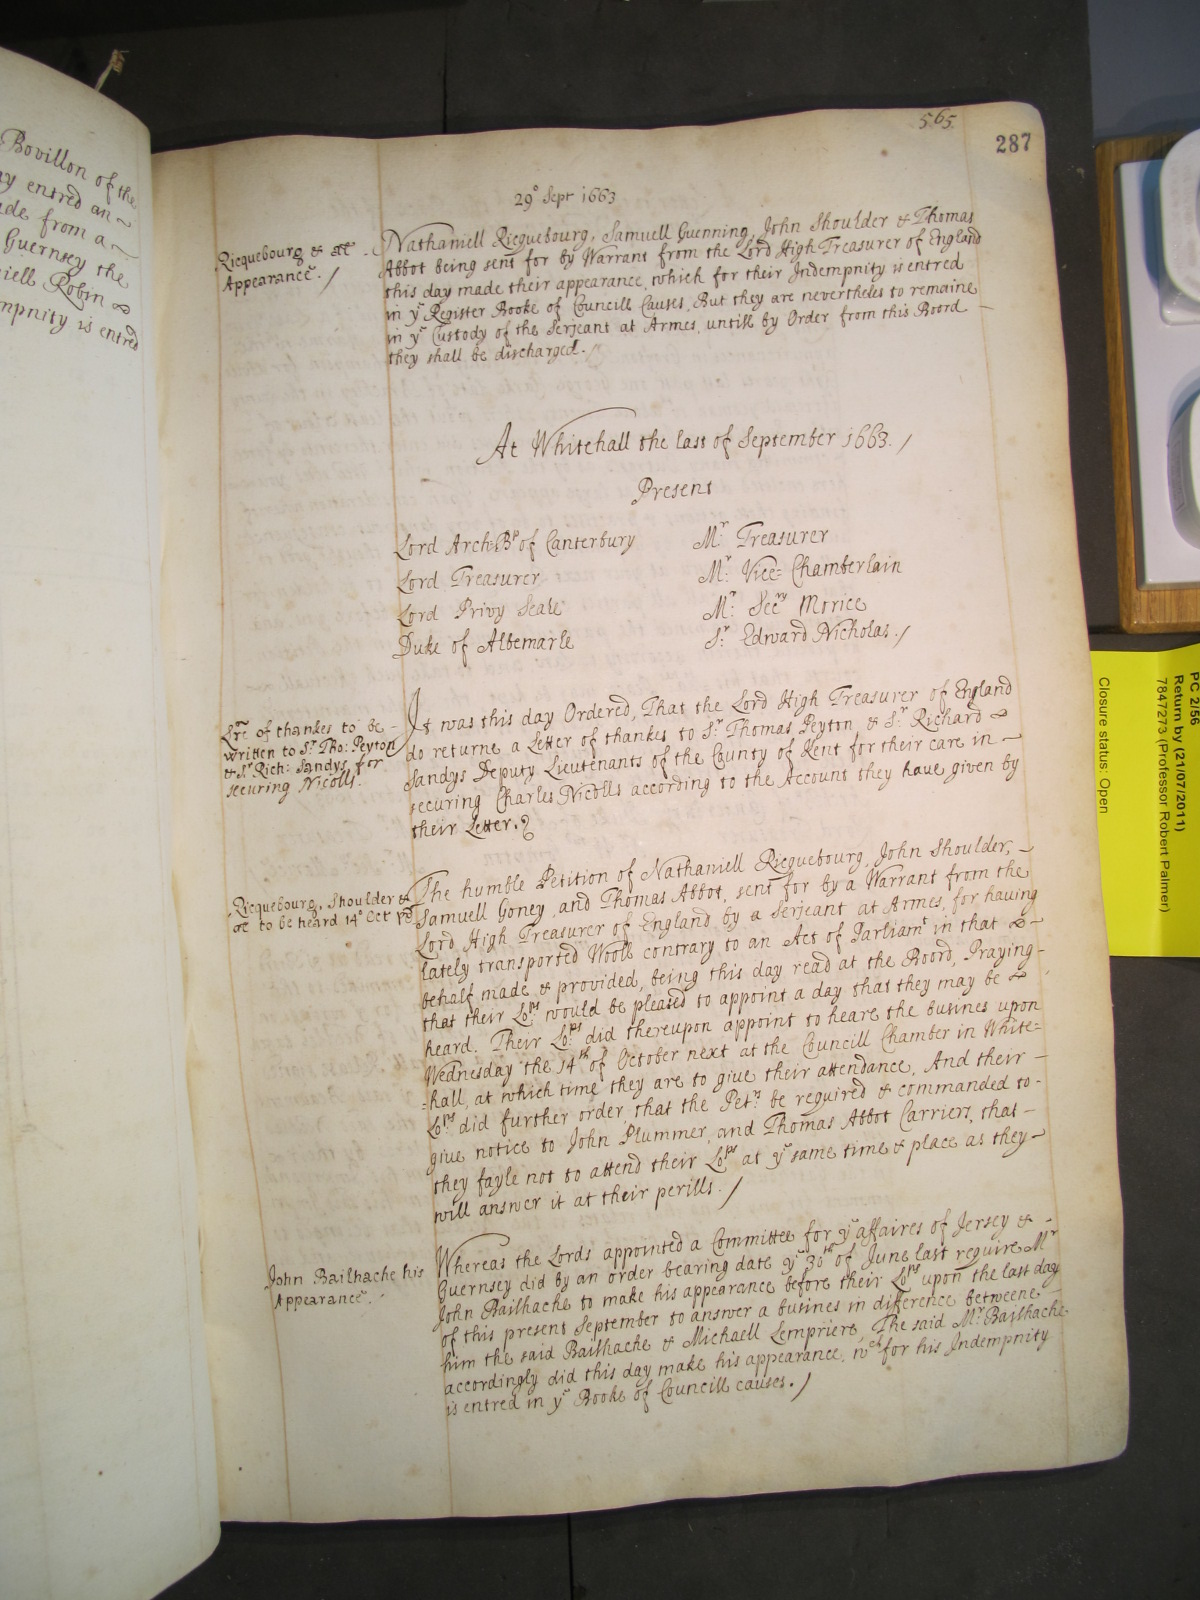 Bovillon of the
ay entred an
ade from a
Guernsey the
niell Robin
mpnity is entred
565.
287
29° Sept 1663
Ricquebourg & al
Appearance. /
Nathaniell Ricquebourg, Samuell Guenning, John Shoulder & Thomas
Abbot being sent for by Warrant from the Lord High Treasurer of England
this day made their appearance, which for their Indempnity is entred
in yᵉ Register Booke of Councill Causes, But they are nevertheles to remaine
in yᵉ Custody of the Serjeant at Armes, untill by Order from this Boord
they shall be discharged. /
At Whitehall the last of September 1663. /
Present
Lord Arch:Bᵖ of Canterbury
Lord Treasurer
Lord Privy Seale
Duke of Albemarle
Mʳ Treasurer
Mʳ: Vice= Chamberlain
Mʳ: Secʳʸ Morice
Sʳ: Edward Nicholas. /
Lʳᵉ of thankes to be
written to Sʳ Tho: Peyton
& Sʳ Rich: Sandys for
securing Nicolls.
It was this day Ordered, That the Lord High Treasurer of England
do returne a Letter of thankes to Sʳ Thomas Peyton & Sʳ Richard
Sandys Deputy Lieutenants of the County of Kent for their care in
securing Charles Nicolls according to the Account they have given by
their Letter.
Ricquebourg, Shoulder &
to be heard 14° Oct
The humble Petition of Nathaniell Ricquebourg, John Shoulder,
Samuell Goney, and Thomas Abbot, sent for by a Warrant from the
Lord High Treasurer of England by a Serjeant at Armes, for having
lately transported Wooll contrary to an Act of Parliamᵗ in that
behalf made & provided, being this day read at the Boord, Praying
that their Loᵖˢ would be pleased to appoint a day that they may be
heard. Their Loᵖˢ did thereupon appoint to heare the busines upon
Wednesday the 14ᵗʰ of October next at the Councill Chamber in White=
=hall, at which time they are to give their attendance, And their
Loᵖˢ did further order that the Petʳˢ be required & commanded to
give notice to John Plummer, and Thomas Abbot Carriers, that
they fayle not to attend their Loᵖˢ at yᵉ same time & place as they
will answer it at their perills. /
John Bailhache his
Appearance.
Whereas the Lords appointed a Committee for yᵉ affaires of Jersey &
Guernsey did by an order bearing date yᵉ 30ᵗʰ of June last require Mʳ
John Bailhache to make his appearance before their Loᵖˢ upon the last day
of this present September to answer a busines in difference betweene
him the said Bailhache & Michaell Lempriere, The said Mʳ Bailhache
accordingly did this day make his appearance, wᶜʰ for his Indempnity
is entred in yᵉ Booke of Councill causes. /
PC 2/56
Return by (21/07/2011)
7847273 (Professor Robert Palmer)
Closure status: Open